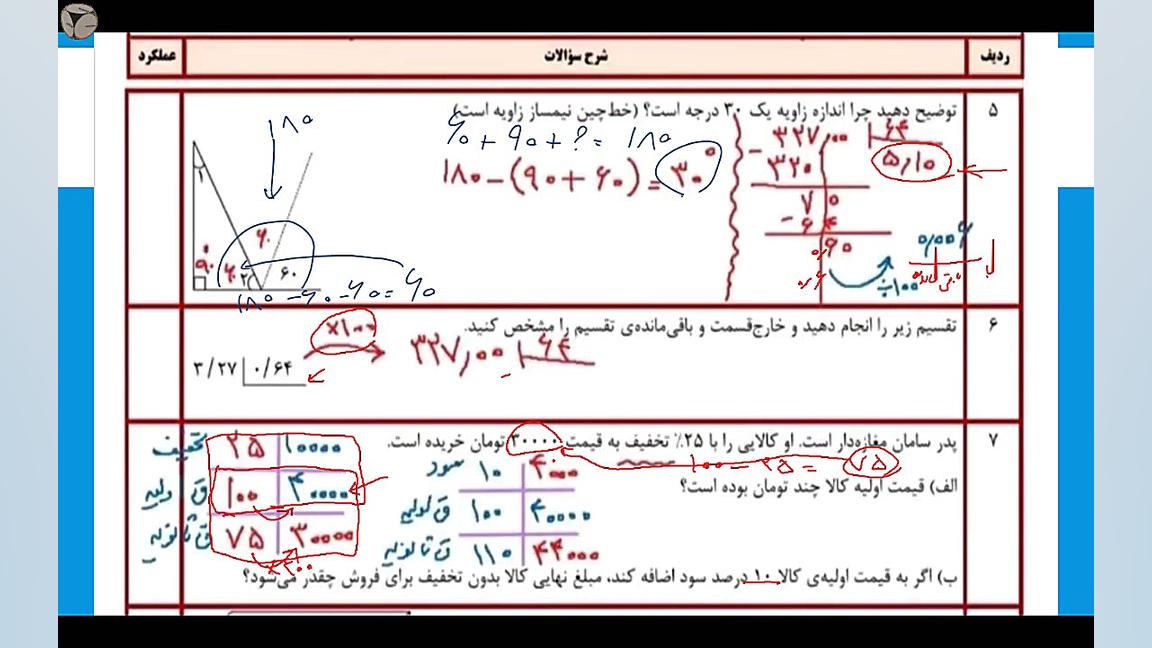 ردیف شرح سؤالات عملکرد
۵ توضیح دهید چرا اندازه زاویه یک ۳۰ درجه است؟ (خط‌چین نیمساز زاویه است)
۶۰ + ۹۰ + ? = ۱۸۰
۱۸۰ - (۹۰ + ۶۰) = ۳۰°
۱۸۰
۱
۹۰ ۶۰ ۲ ۶۰ ۶۰
۱۸۰ - ۶۰ - ۶۰ = ۶۰
۳۲۷٫۰۰ ۶۴
- ۳۲۰ ۵٫۱۰
۷ ۰
- ۶ ۴
۰٫۰۶۰
÷۱۰۰
۶ تقسیم زیر را انجام دهید و خارج‌قسمت و باقی‌مانده‌ی تقسیم را مشخص کنید.
×۱۰۰
۳/۲۷ ۰/۶۴
۳۲۷٫۰۰ ۶۴
۷ پدر سامان مغازه‌دار است. او کالایی را با ۲۵٪ تخفیف به قیمت ۳۰۰۰۰ تومان خریده است.
۱۰۰ - ۲۵ = ۷۵
الف) قیمت اولیه کالا چند تومان بوده است؟
تخفیف ۲۵ ۱۰۰۰۰
ق اولیه ۱۰۰ ۴۰۰۰۰
ق ثانویه ۷۵ ۳۰۰۰۰
×۴۰۰
سود ۱۰ ۴۰۰۰
ق اولیه ۱۰۰ ۴۰۰۰۰
ق ثانویه ۱۱۰ ۴۴۰۰۰
ب) اگر به قیمت اولیه‌ی کالا ۱۰ درصد سود اضافه کند، مبلغ نهایی کالا بدون تخفیف برای فروش چقدر می‌شود؟